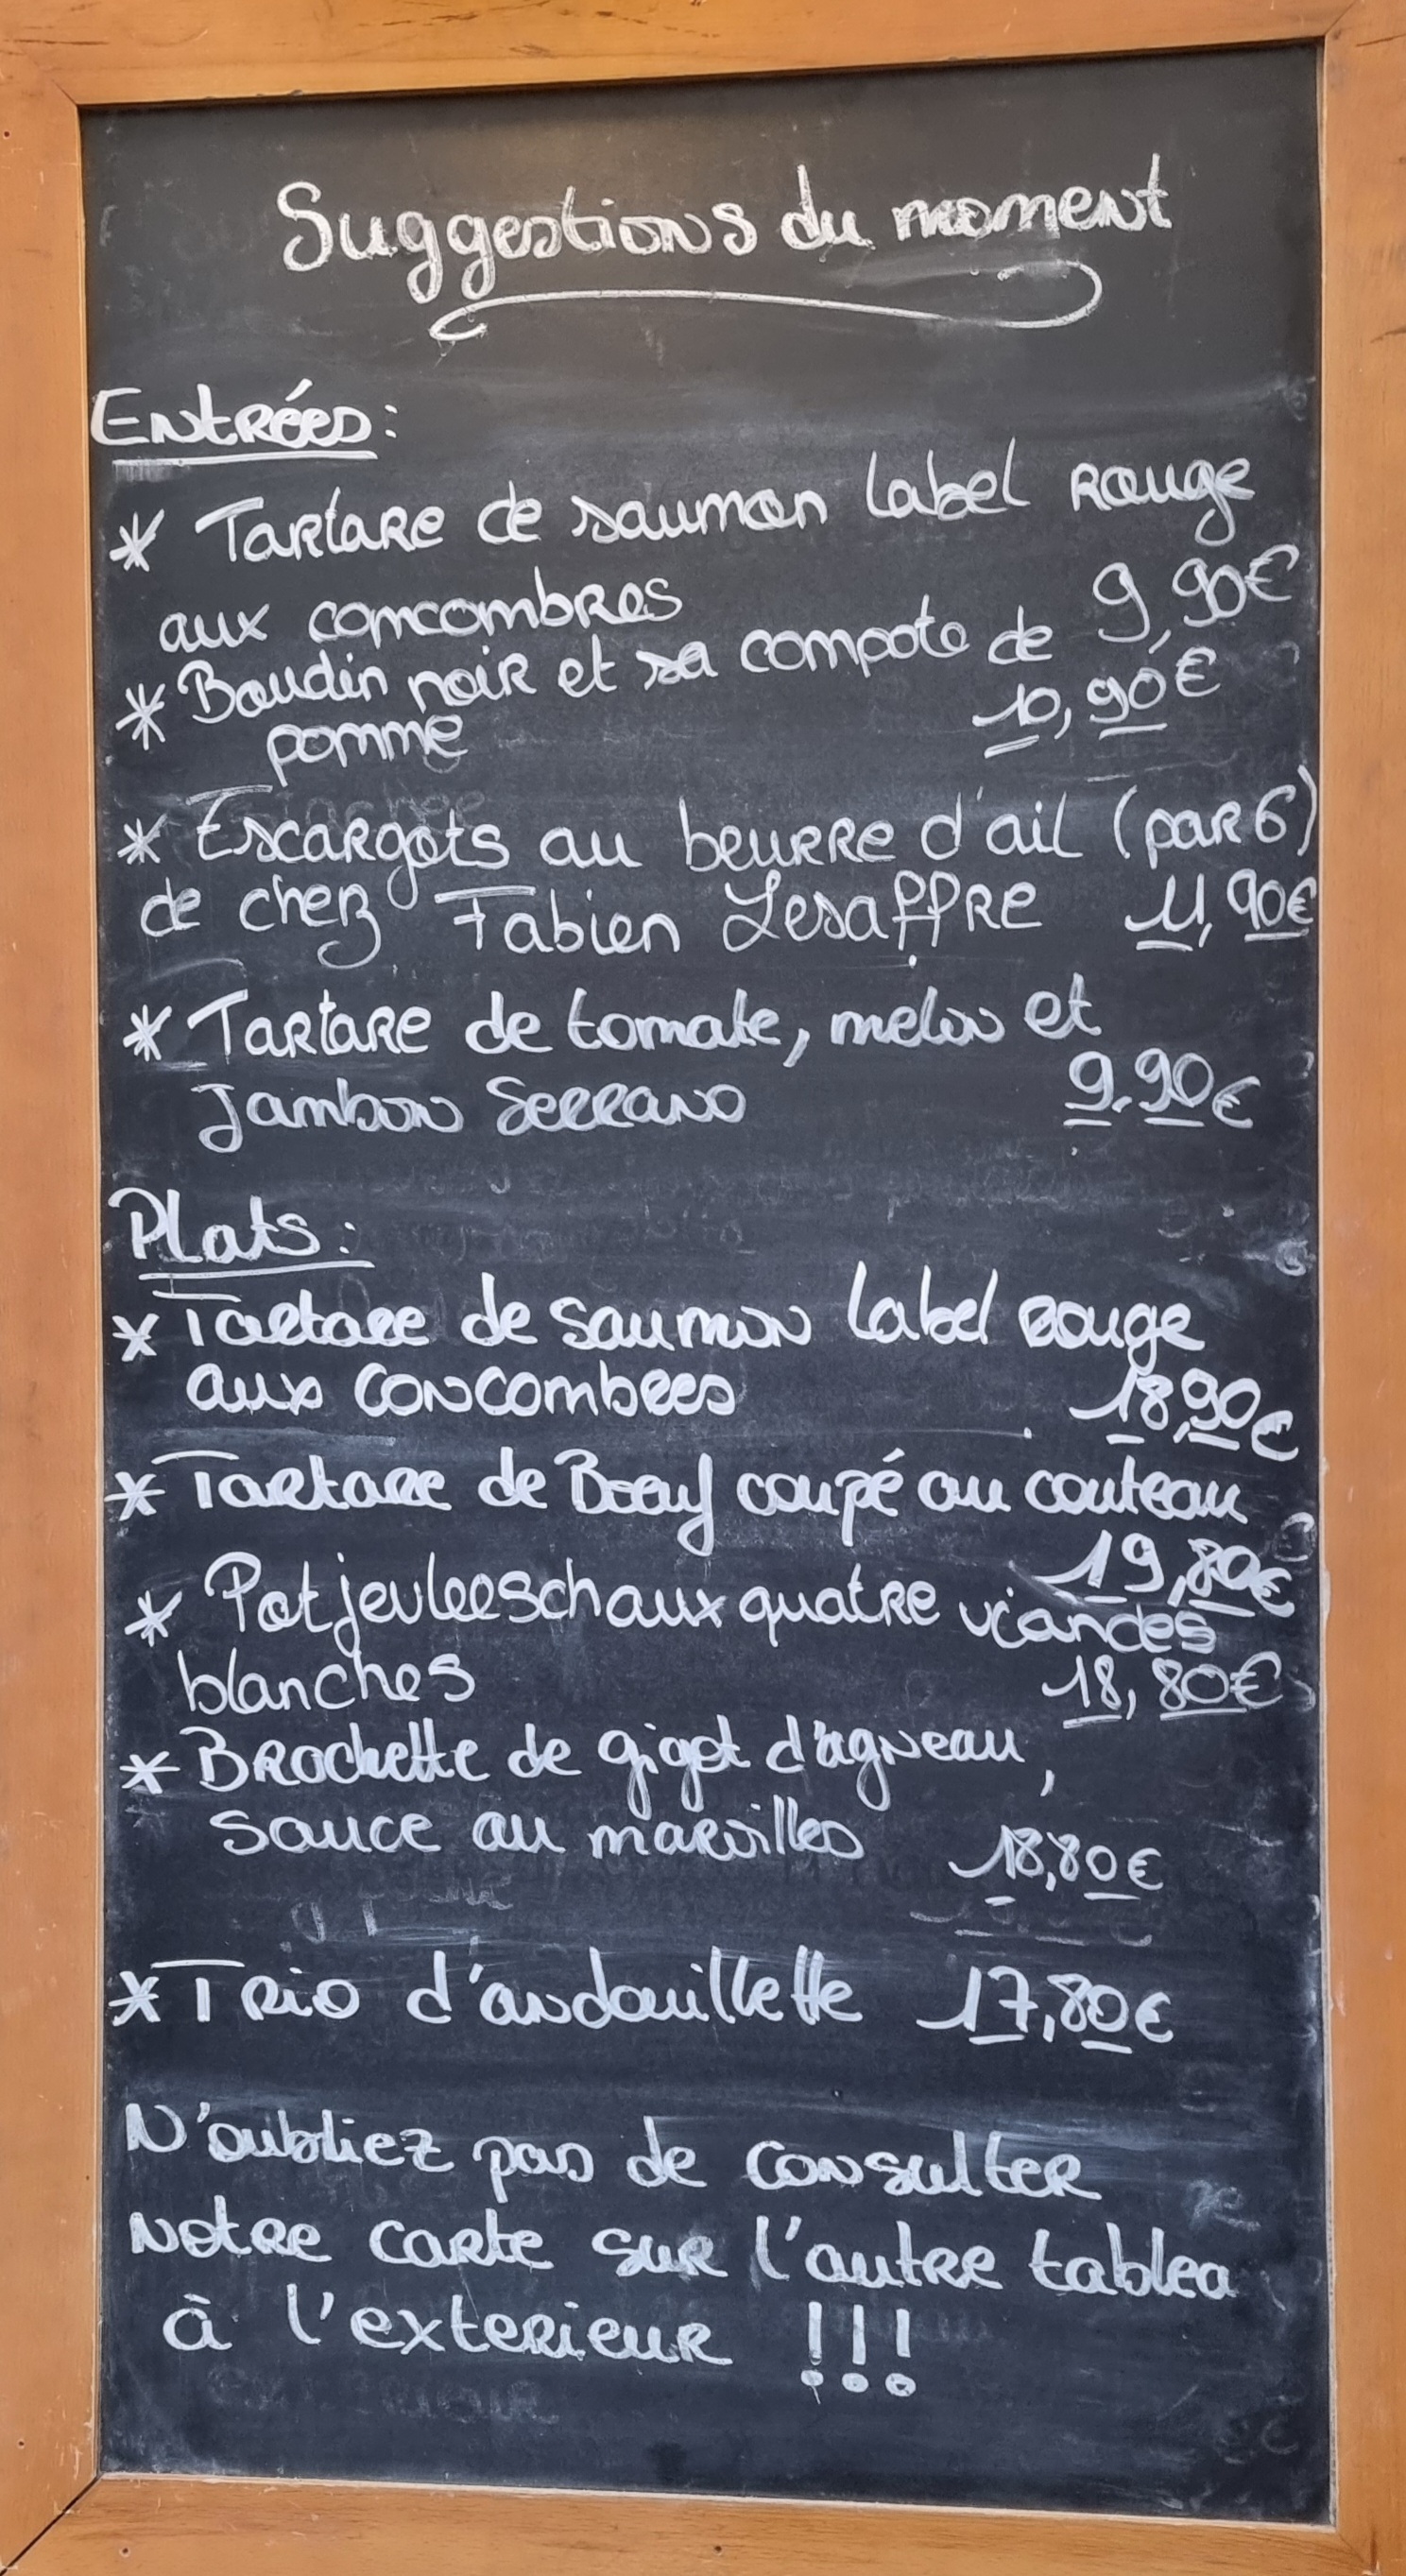 Suggestions du moment
Entrées :
* Tartare de saumon Label Rouge
aux concombres 9,90€
* Boudin noir et sa compote de
pomme 10,90€
* Escargots au beurre d'ail (par 6)
de chez Fabien Lesaffre 11,90€
* Tartare de tomate, melon et
Jambon Serrano 9.90€
Plats :
* Tartare de saumon Label Rouge
aux concombres 18,90€
* Tartare de Boeuf coupé au couteau
19,80€
* Potjevleesch aux quatre viandes
blanches 18,80€
* Brochette de gigot d'agneau,
sauce au maroilles 18,80€
* Trio d'andouillette 17,80€
N'oubliez pas de consulter
notre carte sur l'autre tablea
à l'exterieur !!!